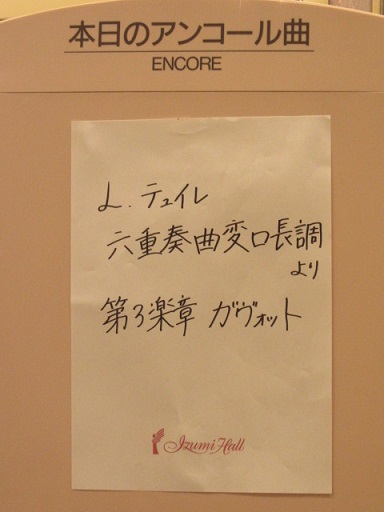 本日のアンコール曲
ENCORE
L. テュイレ
六重奏曲変ロ長調
より
第3楽章 ガヴォット
Izumi Hall